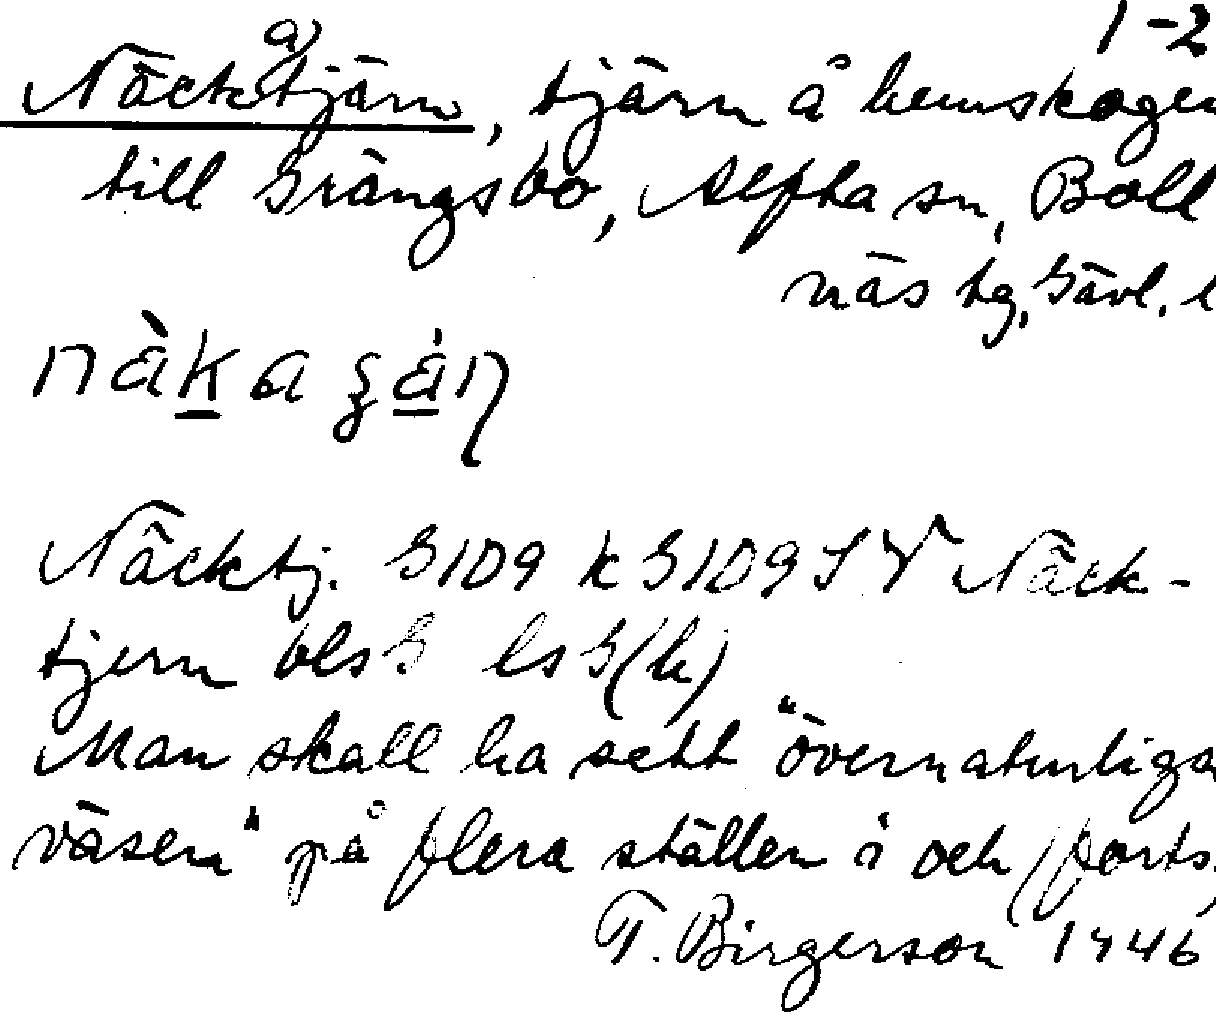 1-2
Näck(a)tjärn, tjärn å hemskogen
till Grängsbo, Alfta sn, Boll
näs tg, Gävl. l
nä̀kaʂáɳ
Näcktj. G109 k G109SV Näck-
tjern bls G ls G(k)
Man skall ha sett "övernaturliga
väsen" på flera ställen i och (forts.)
T. Birgerson 1946